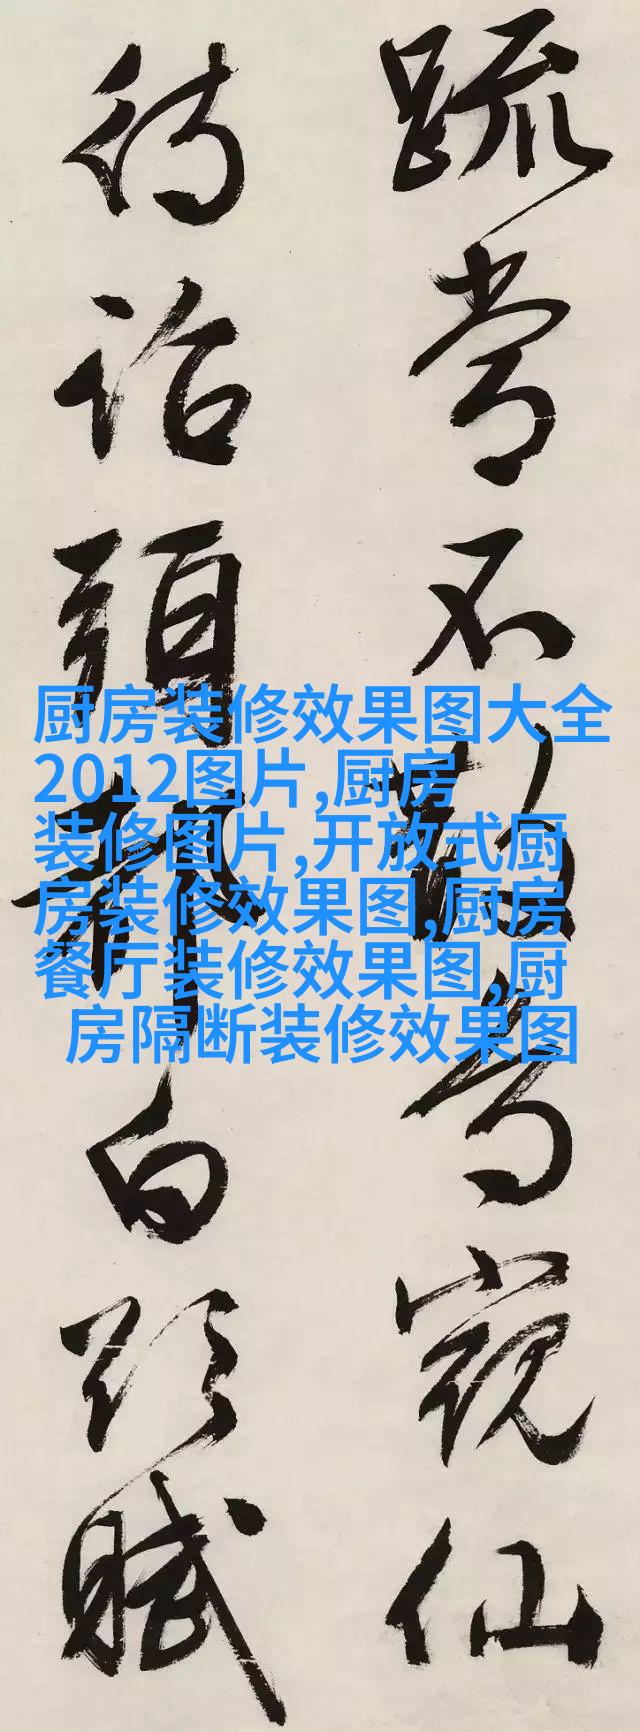 疏 不 窺仙
待詔頭 白 賦
厨房装修效果图大全
2012图片,厨房
装修图片,开放式厨
房装修效果图,厨房
餐厅装修效果图,厨
房隔断装修效果图